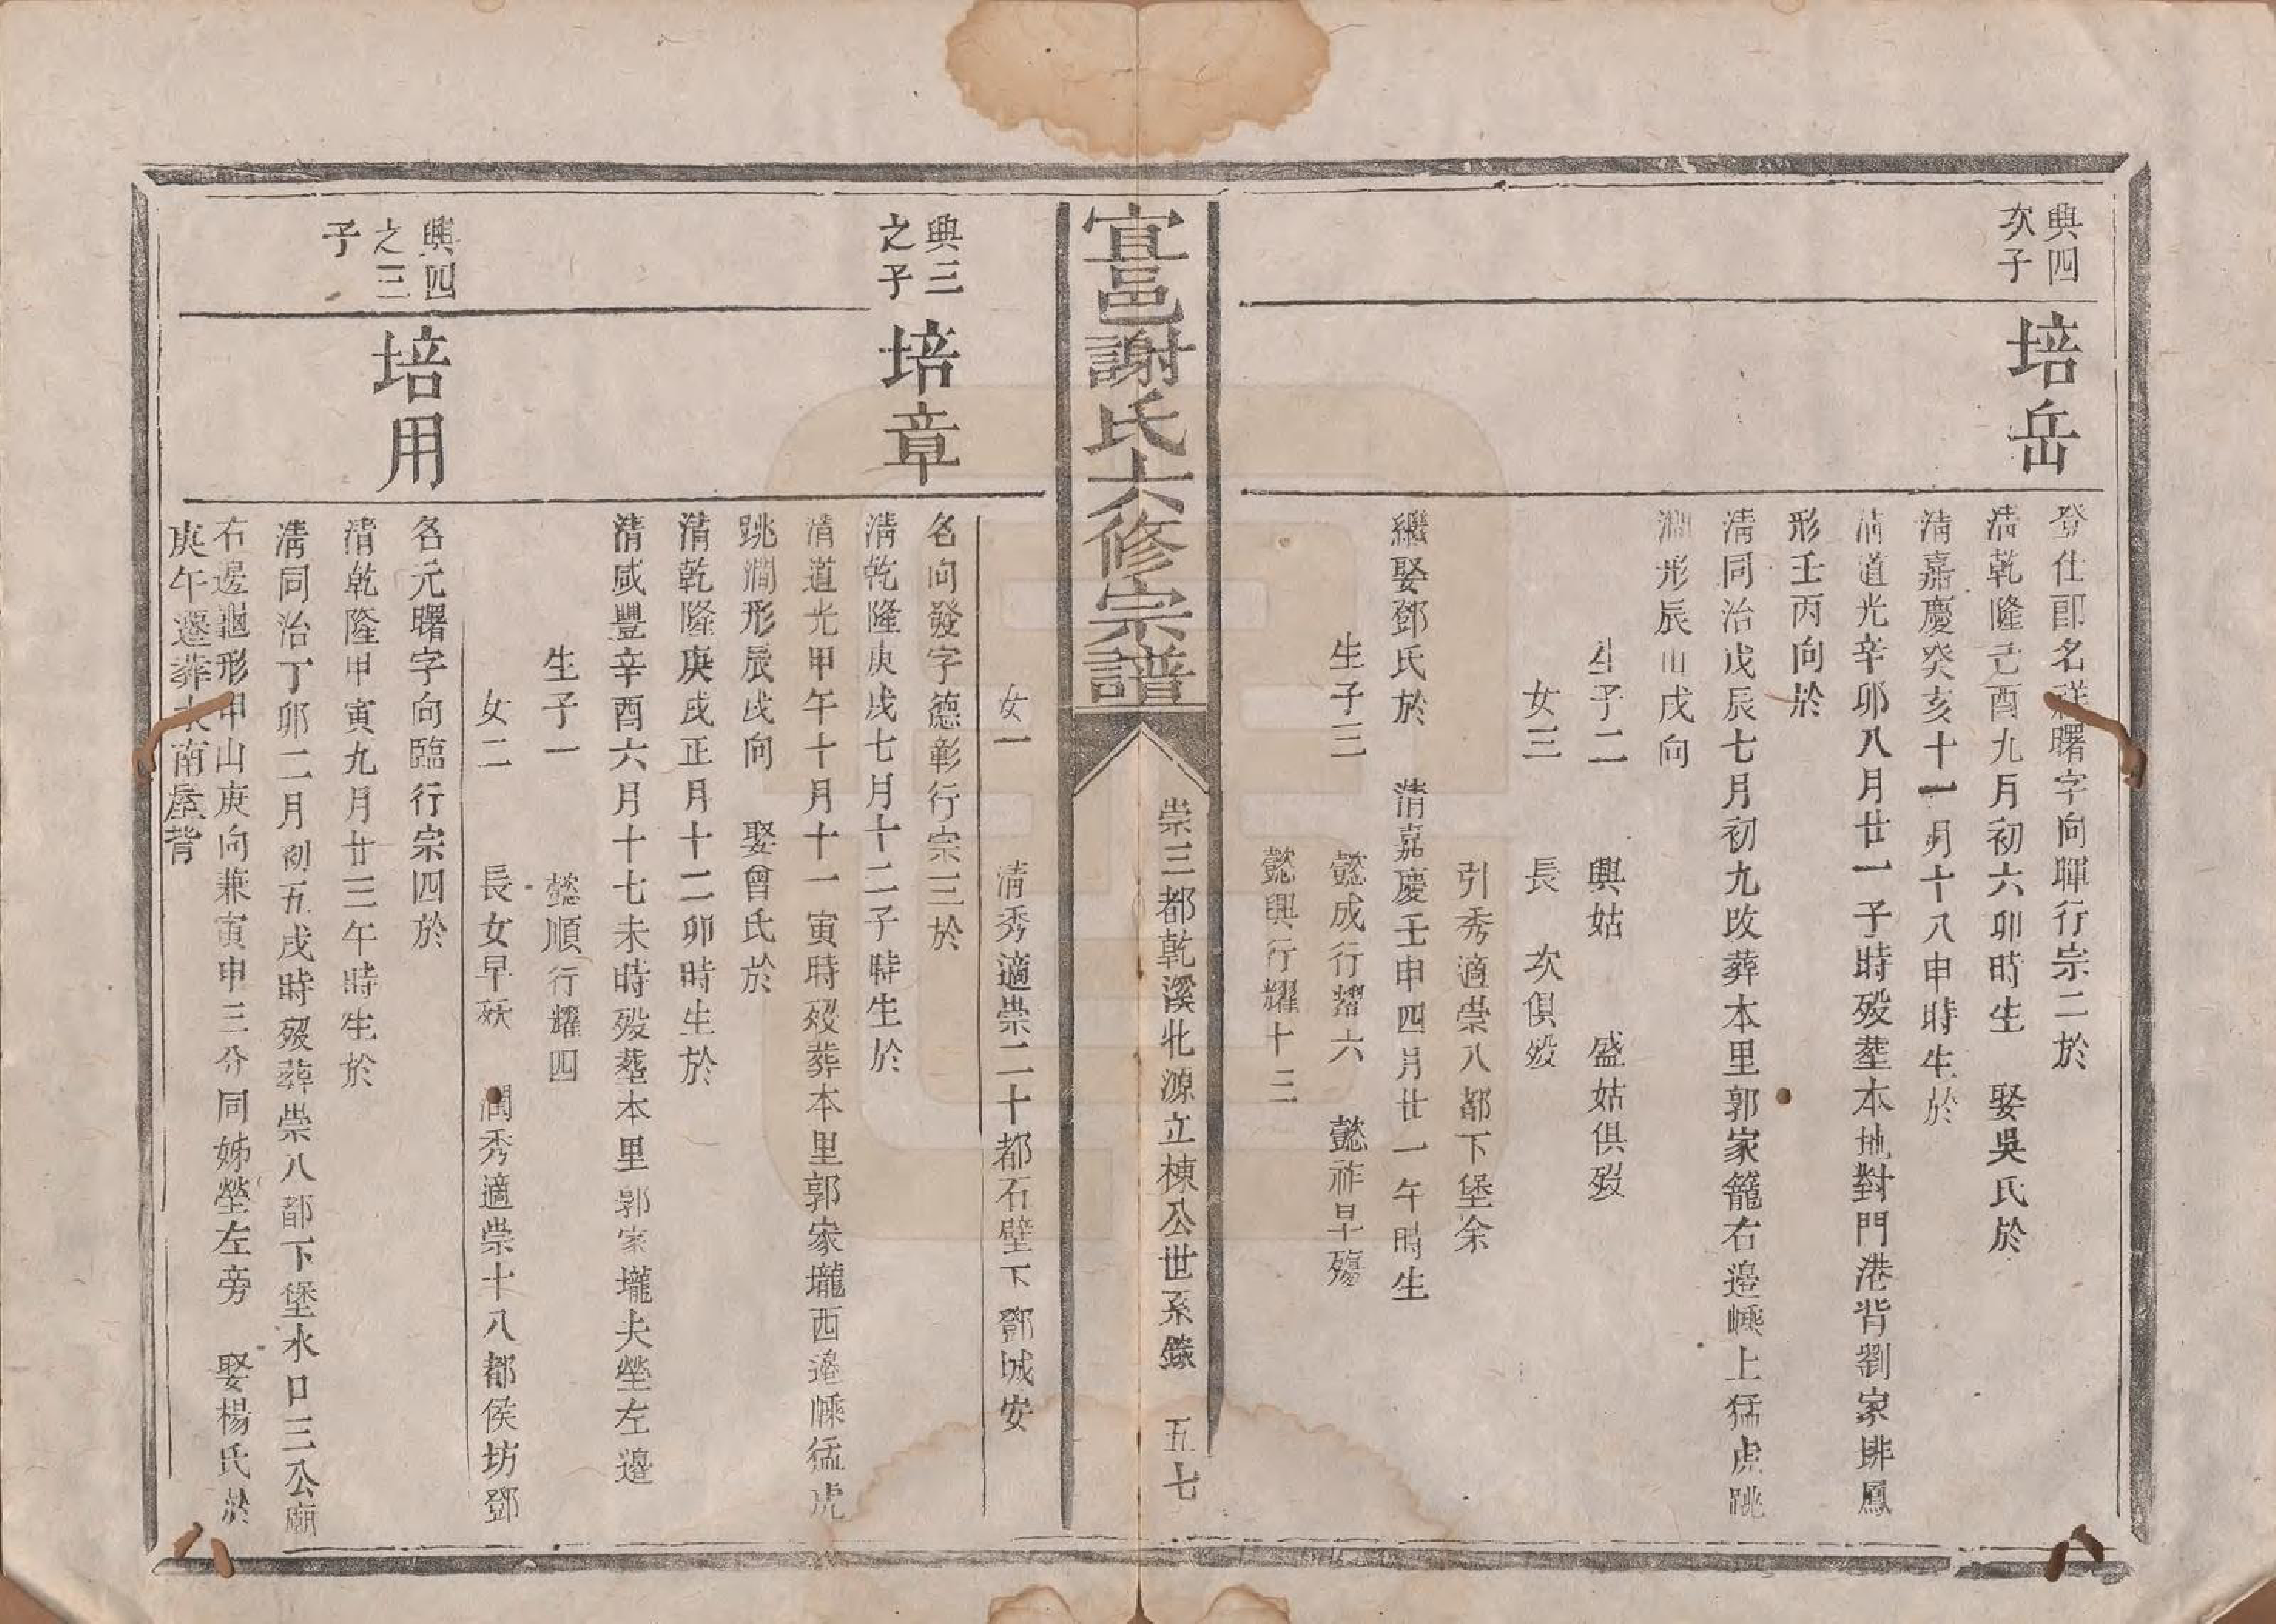 興四
次子
培岳
登仕郎名祥曙字向暉行宗二於
清乾隆己酉九月初六卯時生 娶吳氏於
清嘉慶癸亥十一月十八申時生於
清道光辛卯八月廿一子時歿塟本地對門港背劉家排鳳
形壬丙向於
清同治戊辰七月初九改葬本里郭家籠右邉㟼上猛虎跳
澗形辰山戌向
生子二 興姑 盛姑俱歿
女三 長 次俱歿
引秀適崇八都下堡余
繼娶鄧氏於 清嘉慶壬申四月廿一午時生
生子三 懿成行耀六 懿祚早殤
懿興行耀十三
宜邑謝氏六修宗譜
崇三都乾溪北源立棟公世系錄 五七
女一 清秀適崇二十都石壁下鄧城安
興三
之子
培章
名向發字德彰行宗三於
清乾隆庚戌七月十二子時生於
清道光甲午十月十一寅時歿葬本里郭家壠西邉㟼猛虎
跳澗形辰戌向 娶曾氏於
清乾隆庚戌正月十二卯時生於
清咸豐辛酉六月十七未時歿塟本里郭家壠夫塋左邉
生子一 懿順行耀四
女二 長女早殀 潤秀適崇十八都侯坊鄧
興四
之三
子
培用
名元曙字向臨行宗四於
清乾隆甲寅九月廿三午時生於
清同治丁卯二月初五戌時歿葬崇八都下堡水口三公廟
右邉龜形甲山庚向兼寅申三分同姊塋左旁 娶楊氏於
庚午遷葬水南屋背